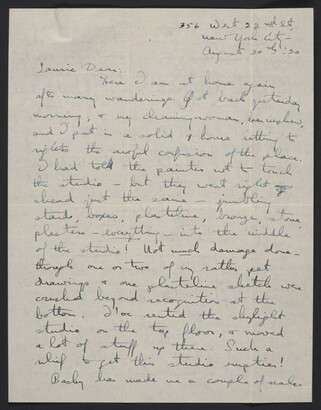 356 West 22nd St.
New York City -
August 30th '30
Laurie Dear:
Here I am at home again
after many wanderings. Got back yesterday
morning, & my cleaning woman, her nephew,
and I put in a solid 8 hours setting to
rights the awful confusion of the place.
I had told the painter not to touch
the studio - but they went right
ahead just the same - jumbling
stands, boxes, plasteline, bronze, stone,
plasters - everything - into the middle
of the studio! Not much damage done -
though one or two of my rather pet
drawings & one plasteline sketch were
crushed beyond recognition at the
bottom. I've rented the skylight
studio on the top floor, & moved
a lot of stuff up there. Such a
relief to get this studio emptier!
has made me a couple of sales